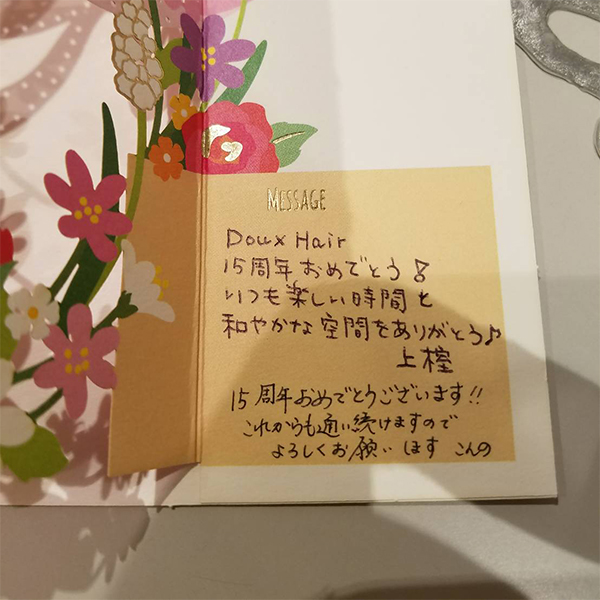 MESSAGE
Doux Hair
15周年おめでとう♪
いつも楽しい時間と
和やかな空間をありがとう♪
上樘
15周年おめでとうございます!!
これからも通い続けますので
よろしくお願いします こんの